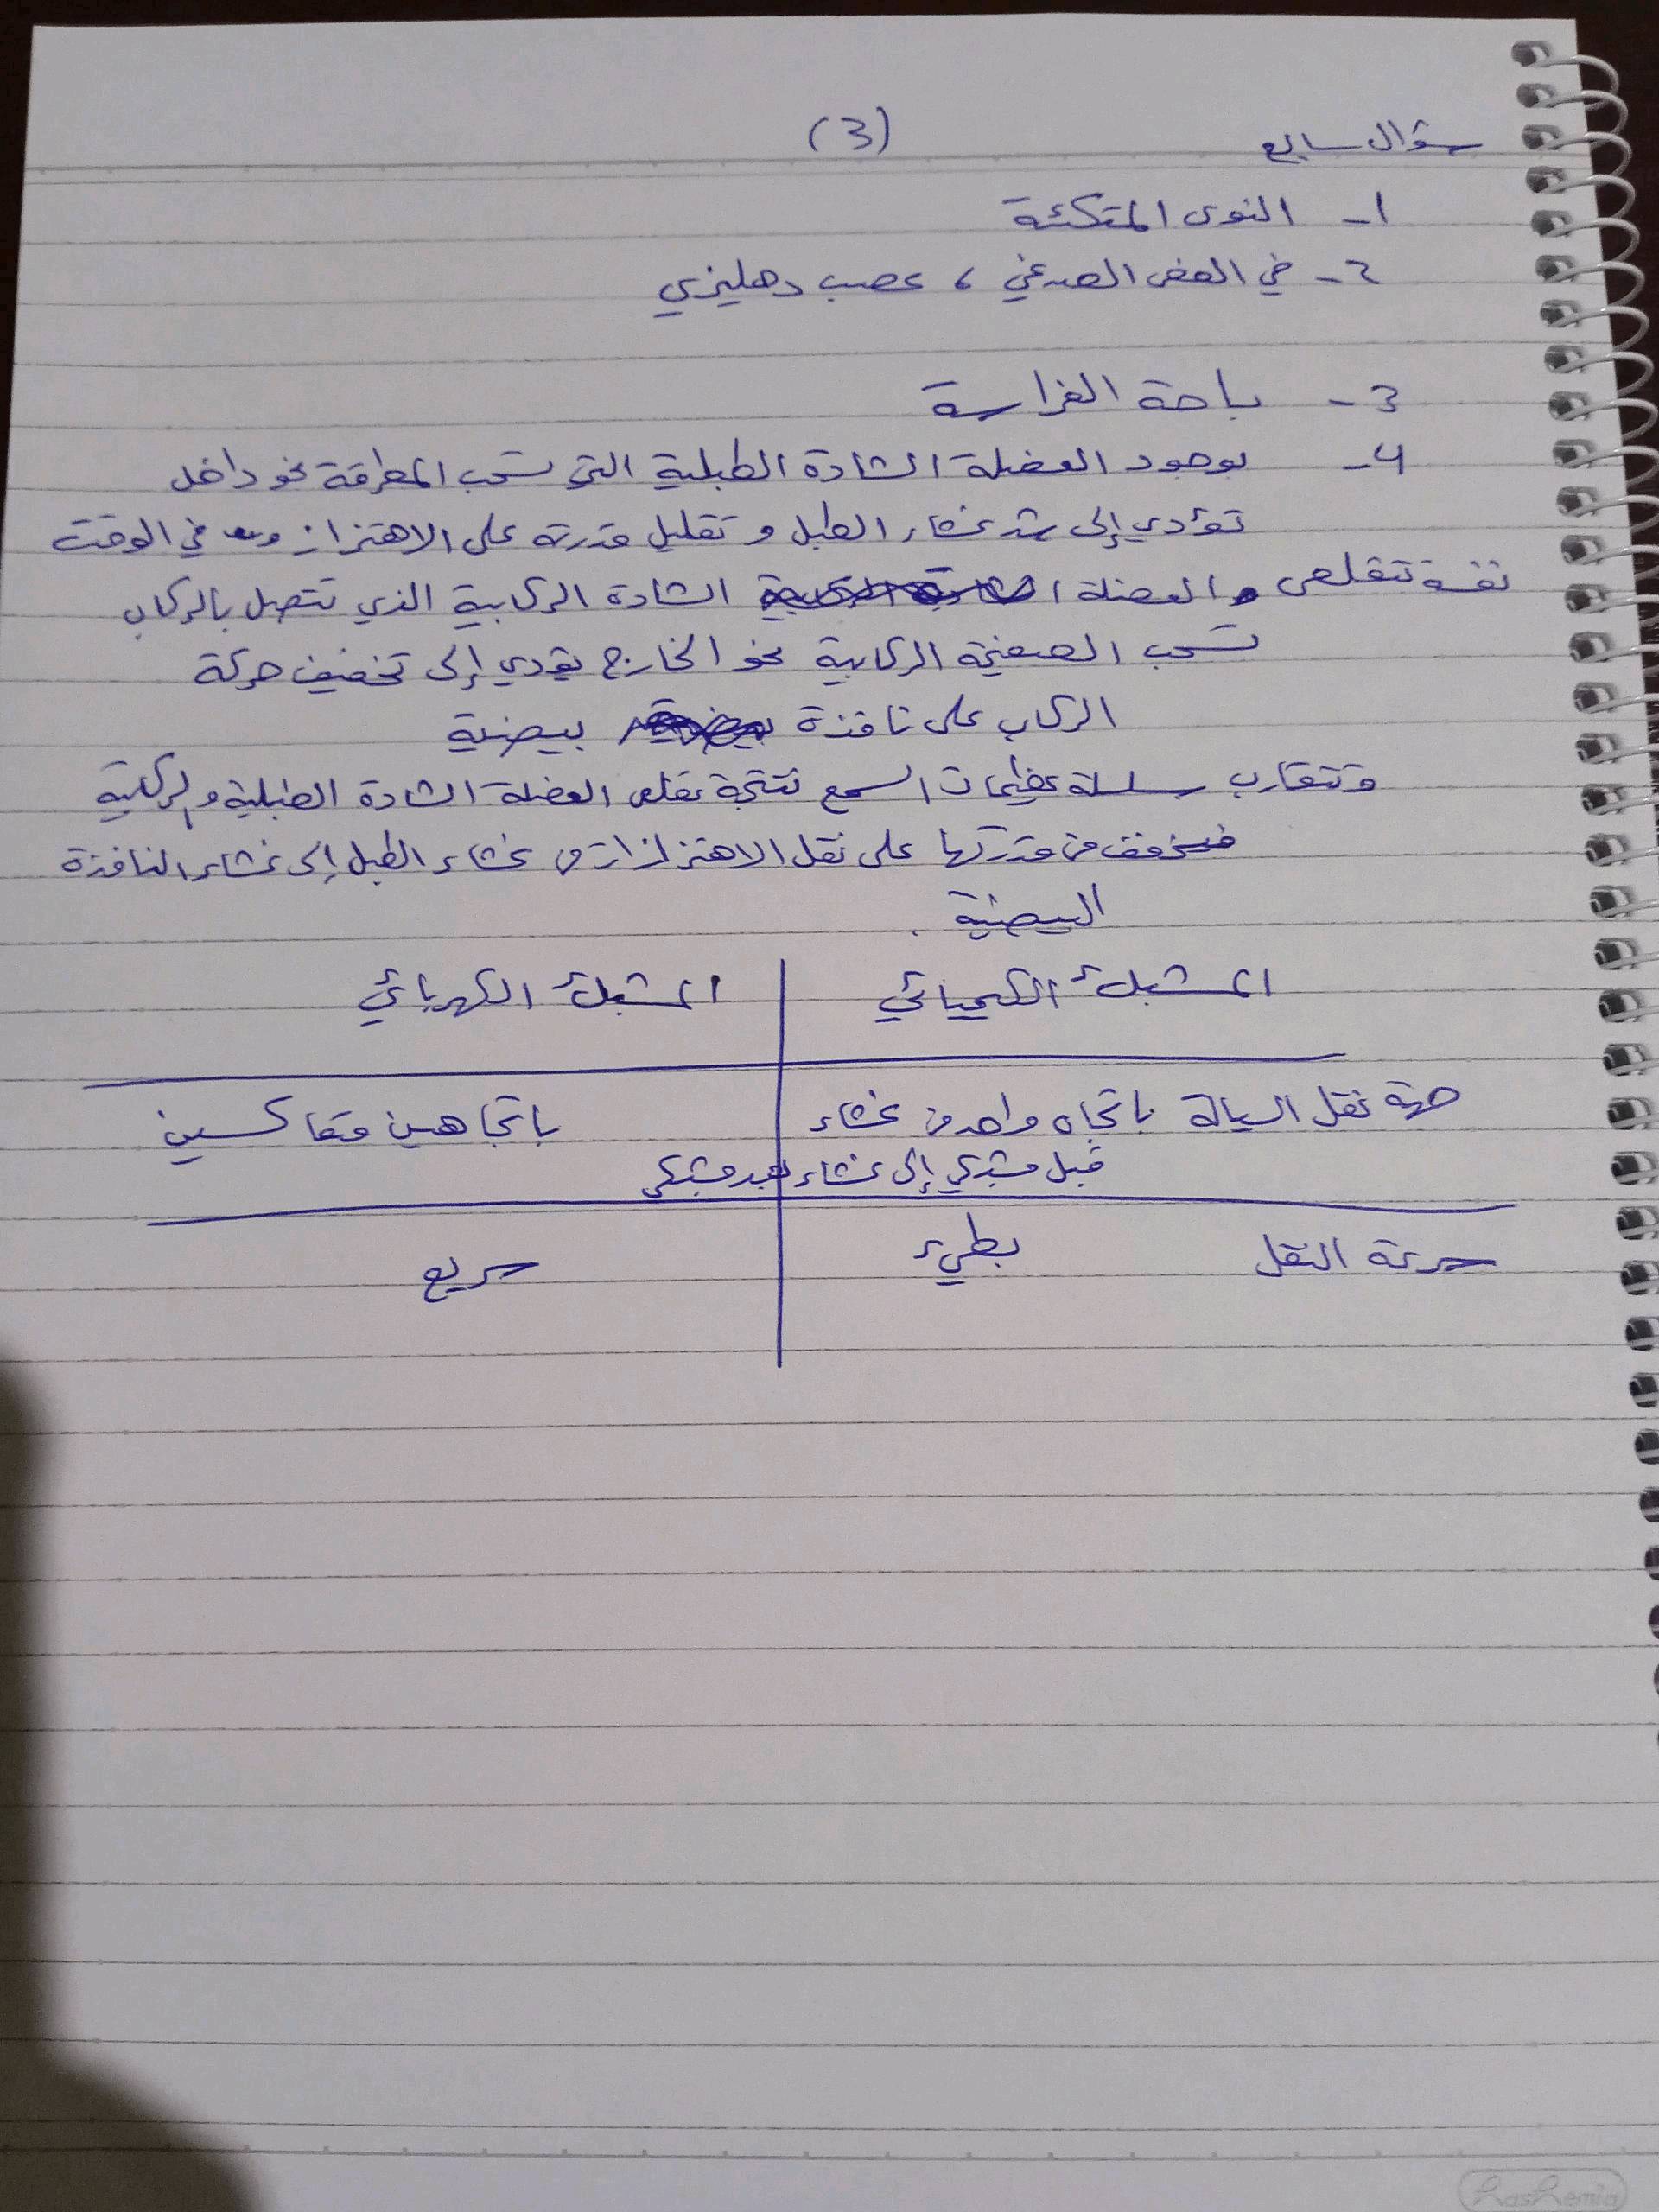 (3)
سؤال سابع
1- النوى المتكئة
2- في الفص الصدغي ، عصب دهليزي
3- باحة الفراسة
4- بوجود العضلة الشادة الطبلية التي تسحب المطرقة نحو داخل
تؤدي إلى شد غشاء الطبل و تقليل قدرته على الاهتزاز في الوقت
نفسه تتقلص العضلة الشادة الركابية الذي تتصل بالركاب
تسحب الصفيحة الركابية نحو الخارج يؤدي إلى تخفيف حركة
الركاب على نافذة بيضية
وتتقارب سلسلة عظيمات السمع نتيجة تقلص العضلة الشادة الطبلية والركابية
فيخفف من قدرتها على نقل الاهتزازات من غشاء الطبل إلى غشاء النافذة
البيضية .
المشبك الكيميائي المشبك الكهربائي
جهة نقل السيالة باتجاه واحد من غشاء باتجاهين متعاكسين
قبل مشبكي إلى غشاء بعد مشبكي
سرعة النقل بطيء سريع
Hashemia